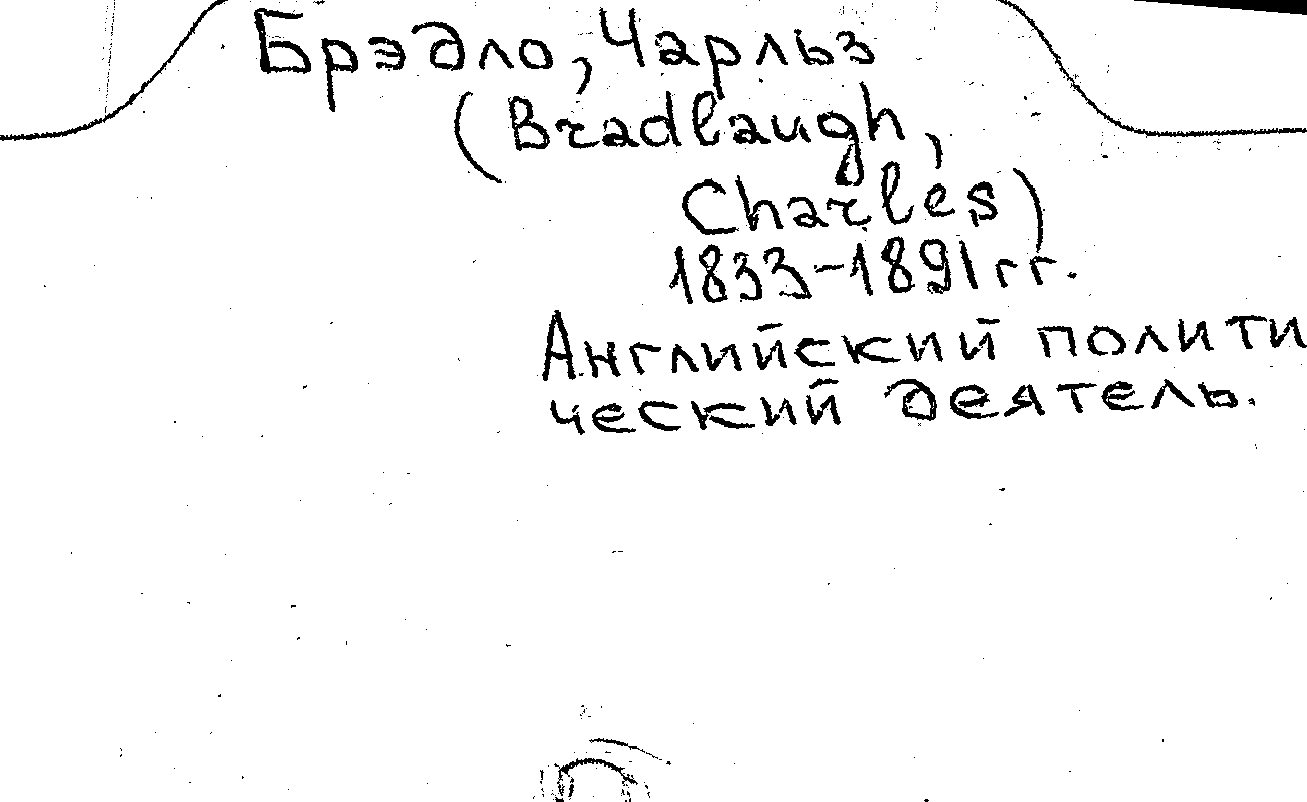 Брэдло, Чарльз
(Bradlaugh,
Charles)
1833-1891 гг.
Английский полити
ческий деятель.